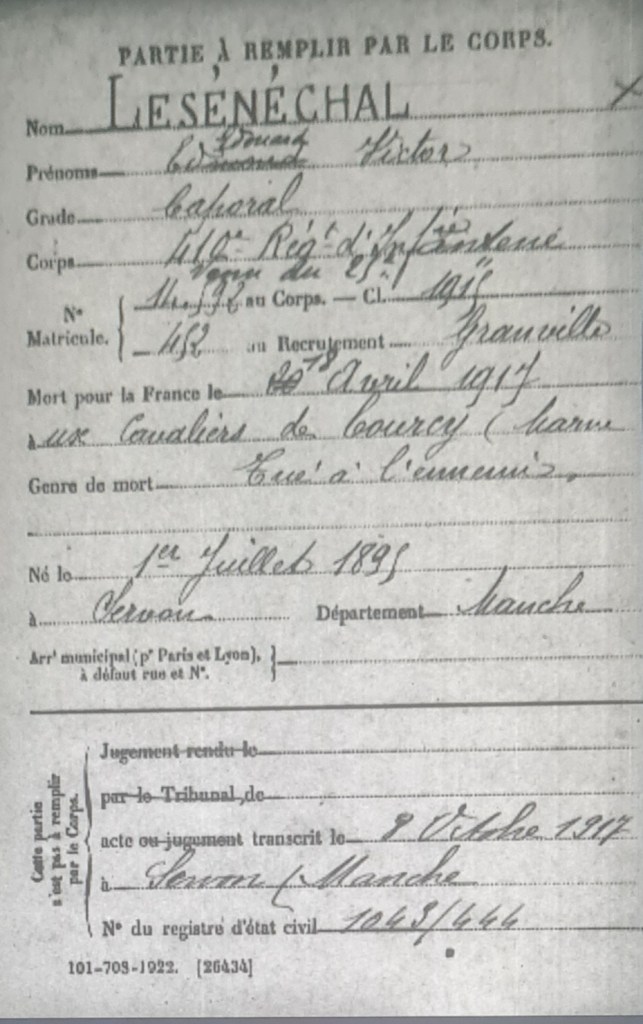 PARTIE À REMPLIR PAR LE CORPS.
Nom LESÉNÉCHAL
Edouard
Prénoms Edmond Victor
Grade Caporal
Corps 410e Régt d'Infanterie
venu du 25e
No Matricule. au Corps. — Cl. 1915
452 au Recrutement Granville
Mort pour la France le 18 Avril 1917
aux Cavaliers de Courcy (Marne
Genre de mort Tué à l'ennemi
Né le 1er Juillet 1895
à Servon Département Manche
Arrt municipal (pr Paris et Lyon),
à défaut rue et No.
Cette partie n'est pas à remplir par le Corps.
Jugement rendu le
par le Tribunal de
acte ou jugement transcrit le 8 Octobre 1917
à Servon (Manche
No du registre d'état civil 1043/444
101-708-1922. [26434]